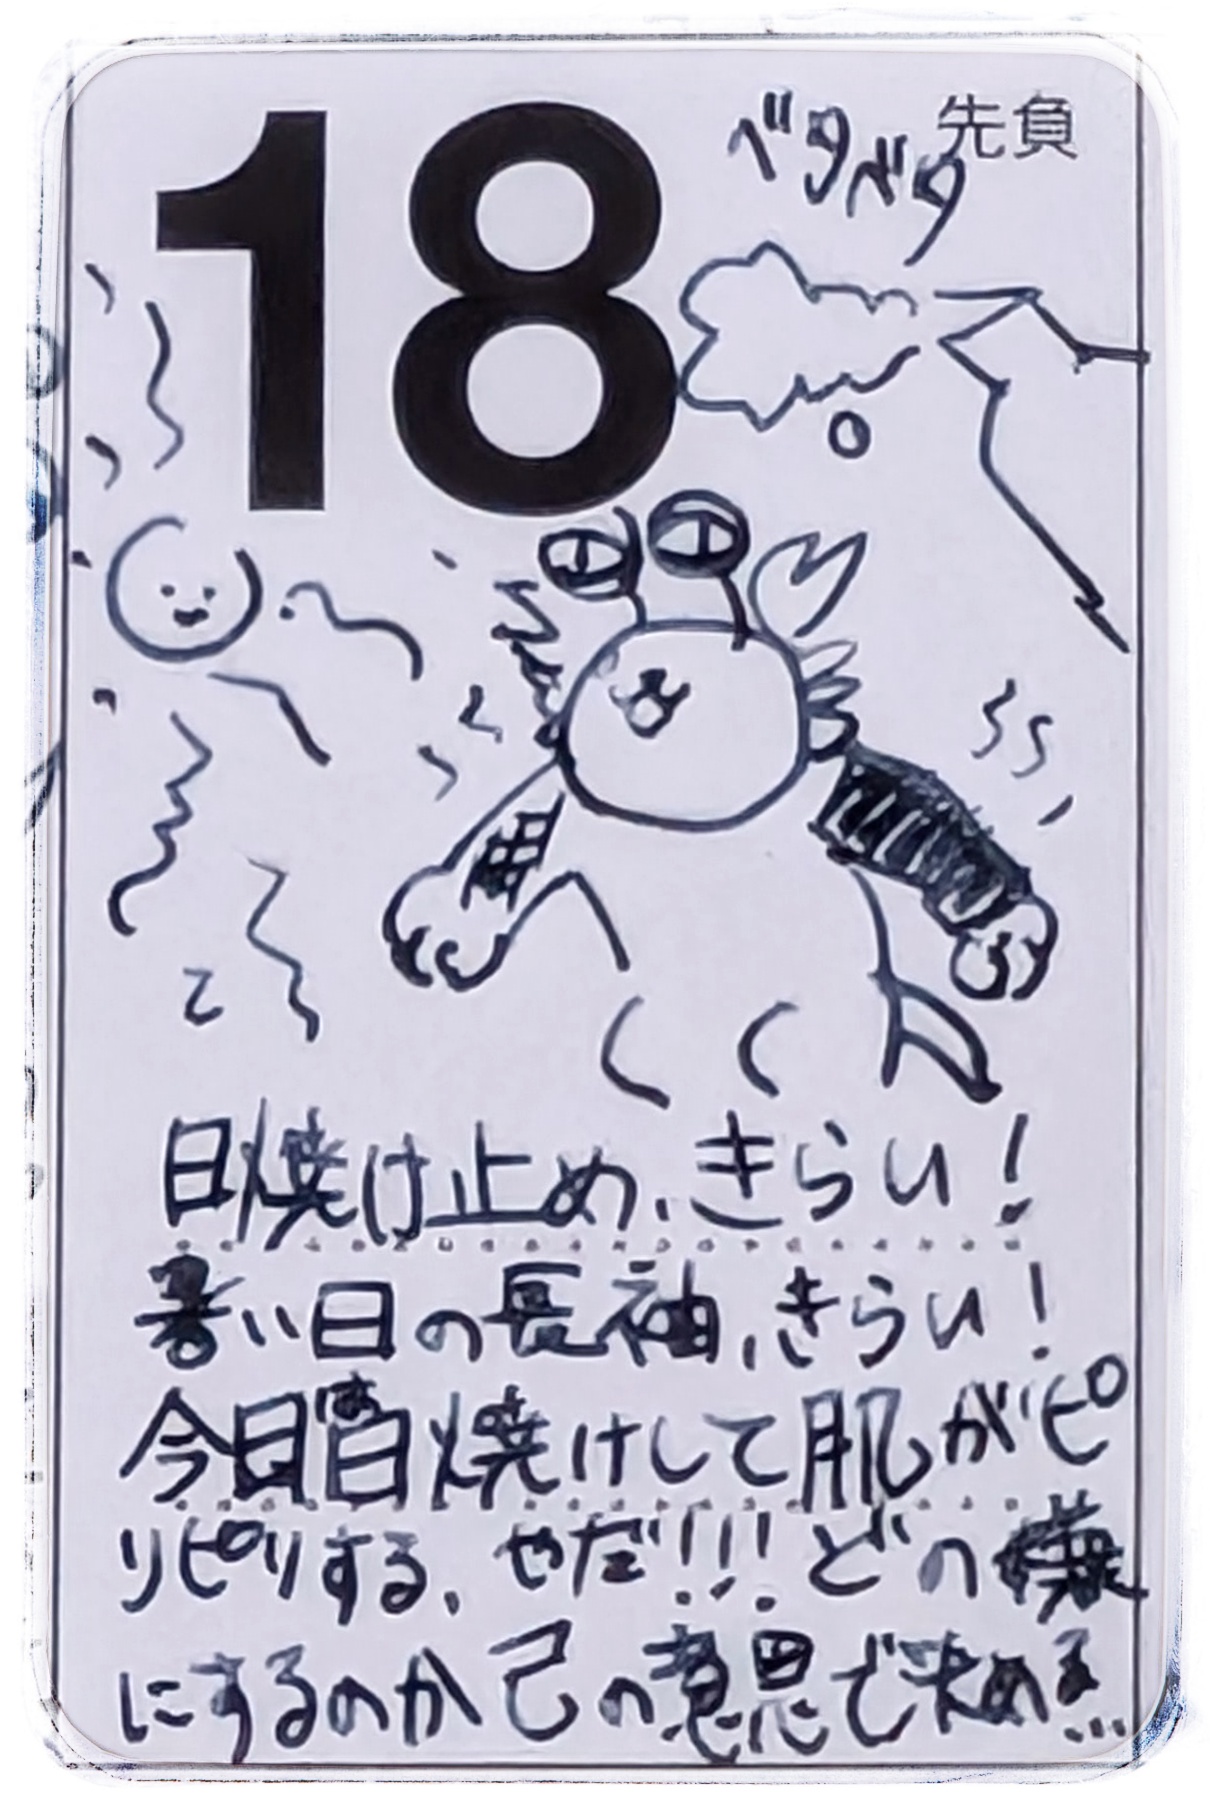 18
先負
ベタベタ
日焼け止め、きらい!
暑い日の長袖、きらい!
今日は日焼けして肌がピ
リピリする、やだ!!!どの嫌
にするのか己の意思で決める…